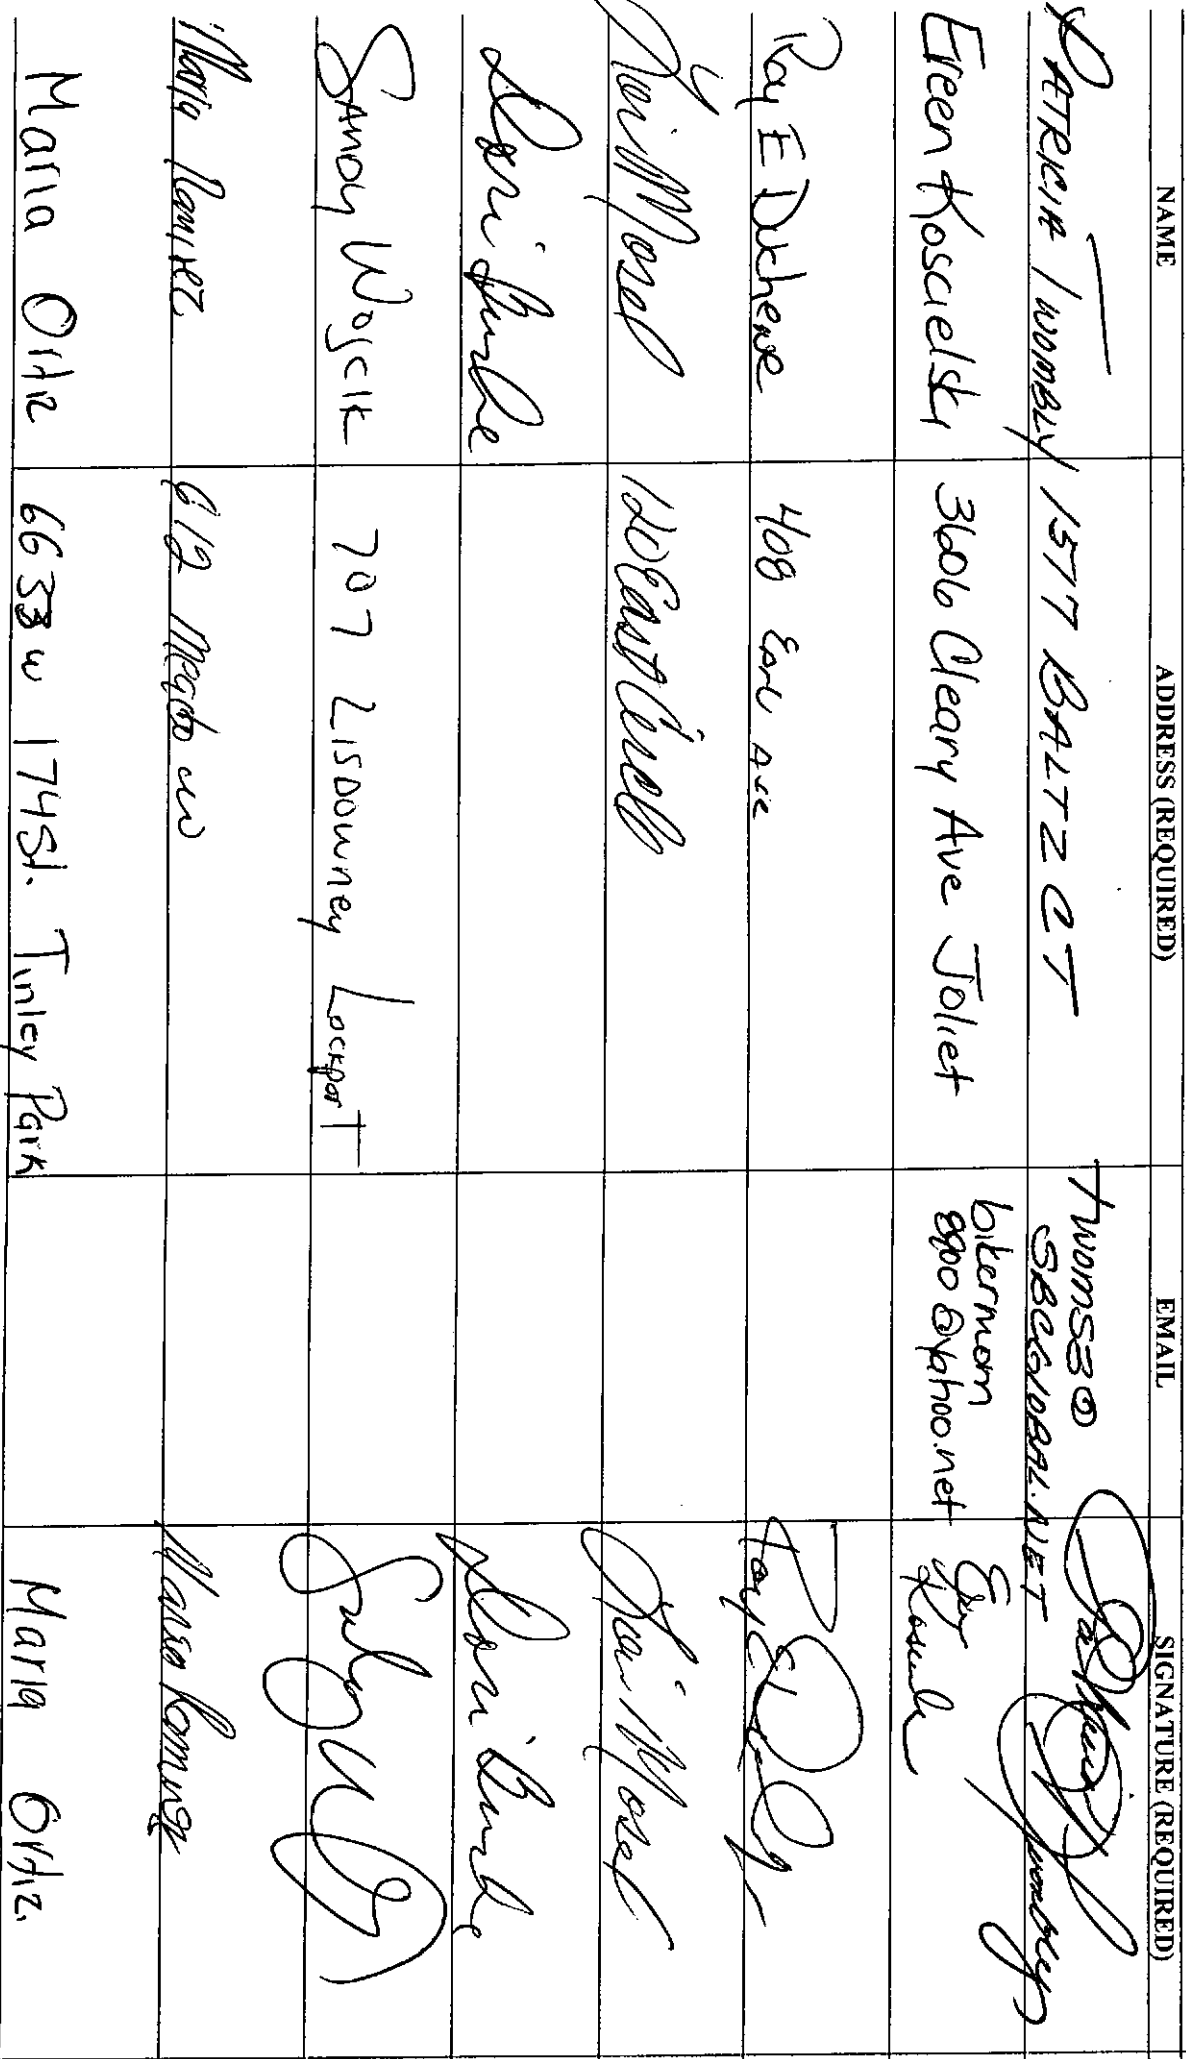 NAME ADDRESS (REQUIRED) EMAIL SIGNATURE (REQUIRED)
PATRICIA TWOMBLY 1577 BALTZ CT twoms3@
SBCGLOBAL.NET Patricia Twombly
Eileen Koscielski 3606 Cleary Ave Joliet bikermom
8900@yahoo.net
Ray E Duchene 408 Earl Ave Ray E
Lori Mosel 120 East Circle Lori Mosel
Lori Burke Lori Burke
SANDY WOJCIK 707 LISDOWNEY LOCKPORT
Maria Ramirez 612 Maria Ramirez
Maria Ortiz 6633 w 174 St. Tinley Park Maria Ortiz.